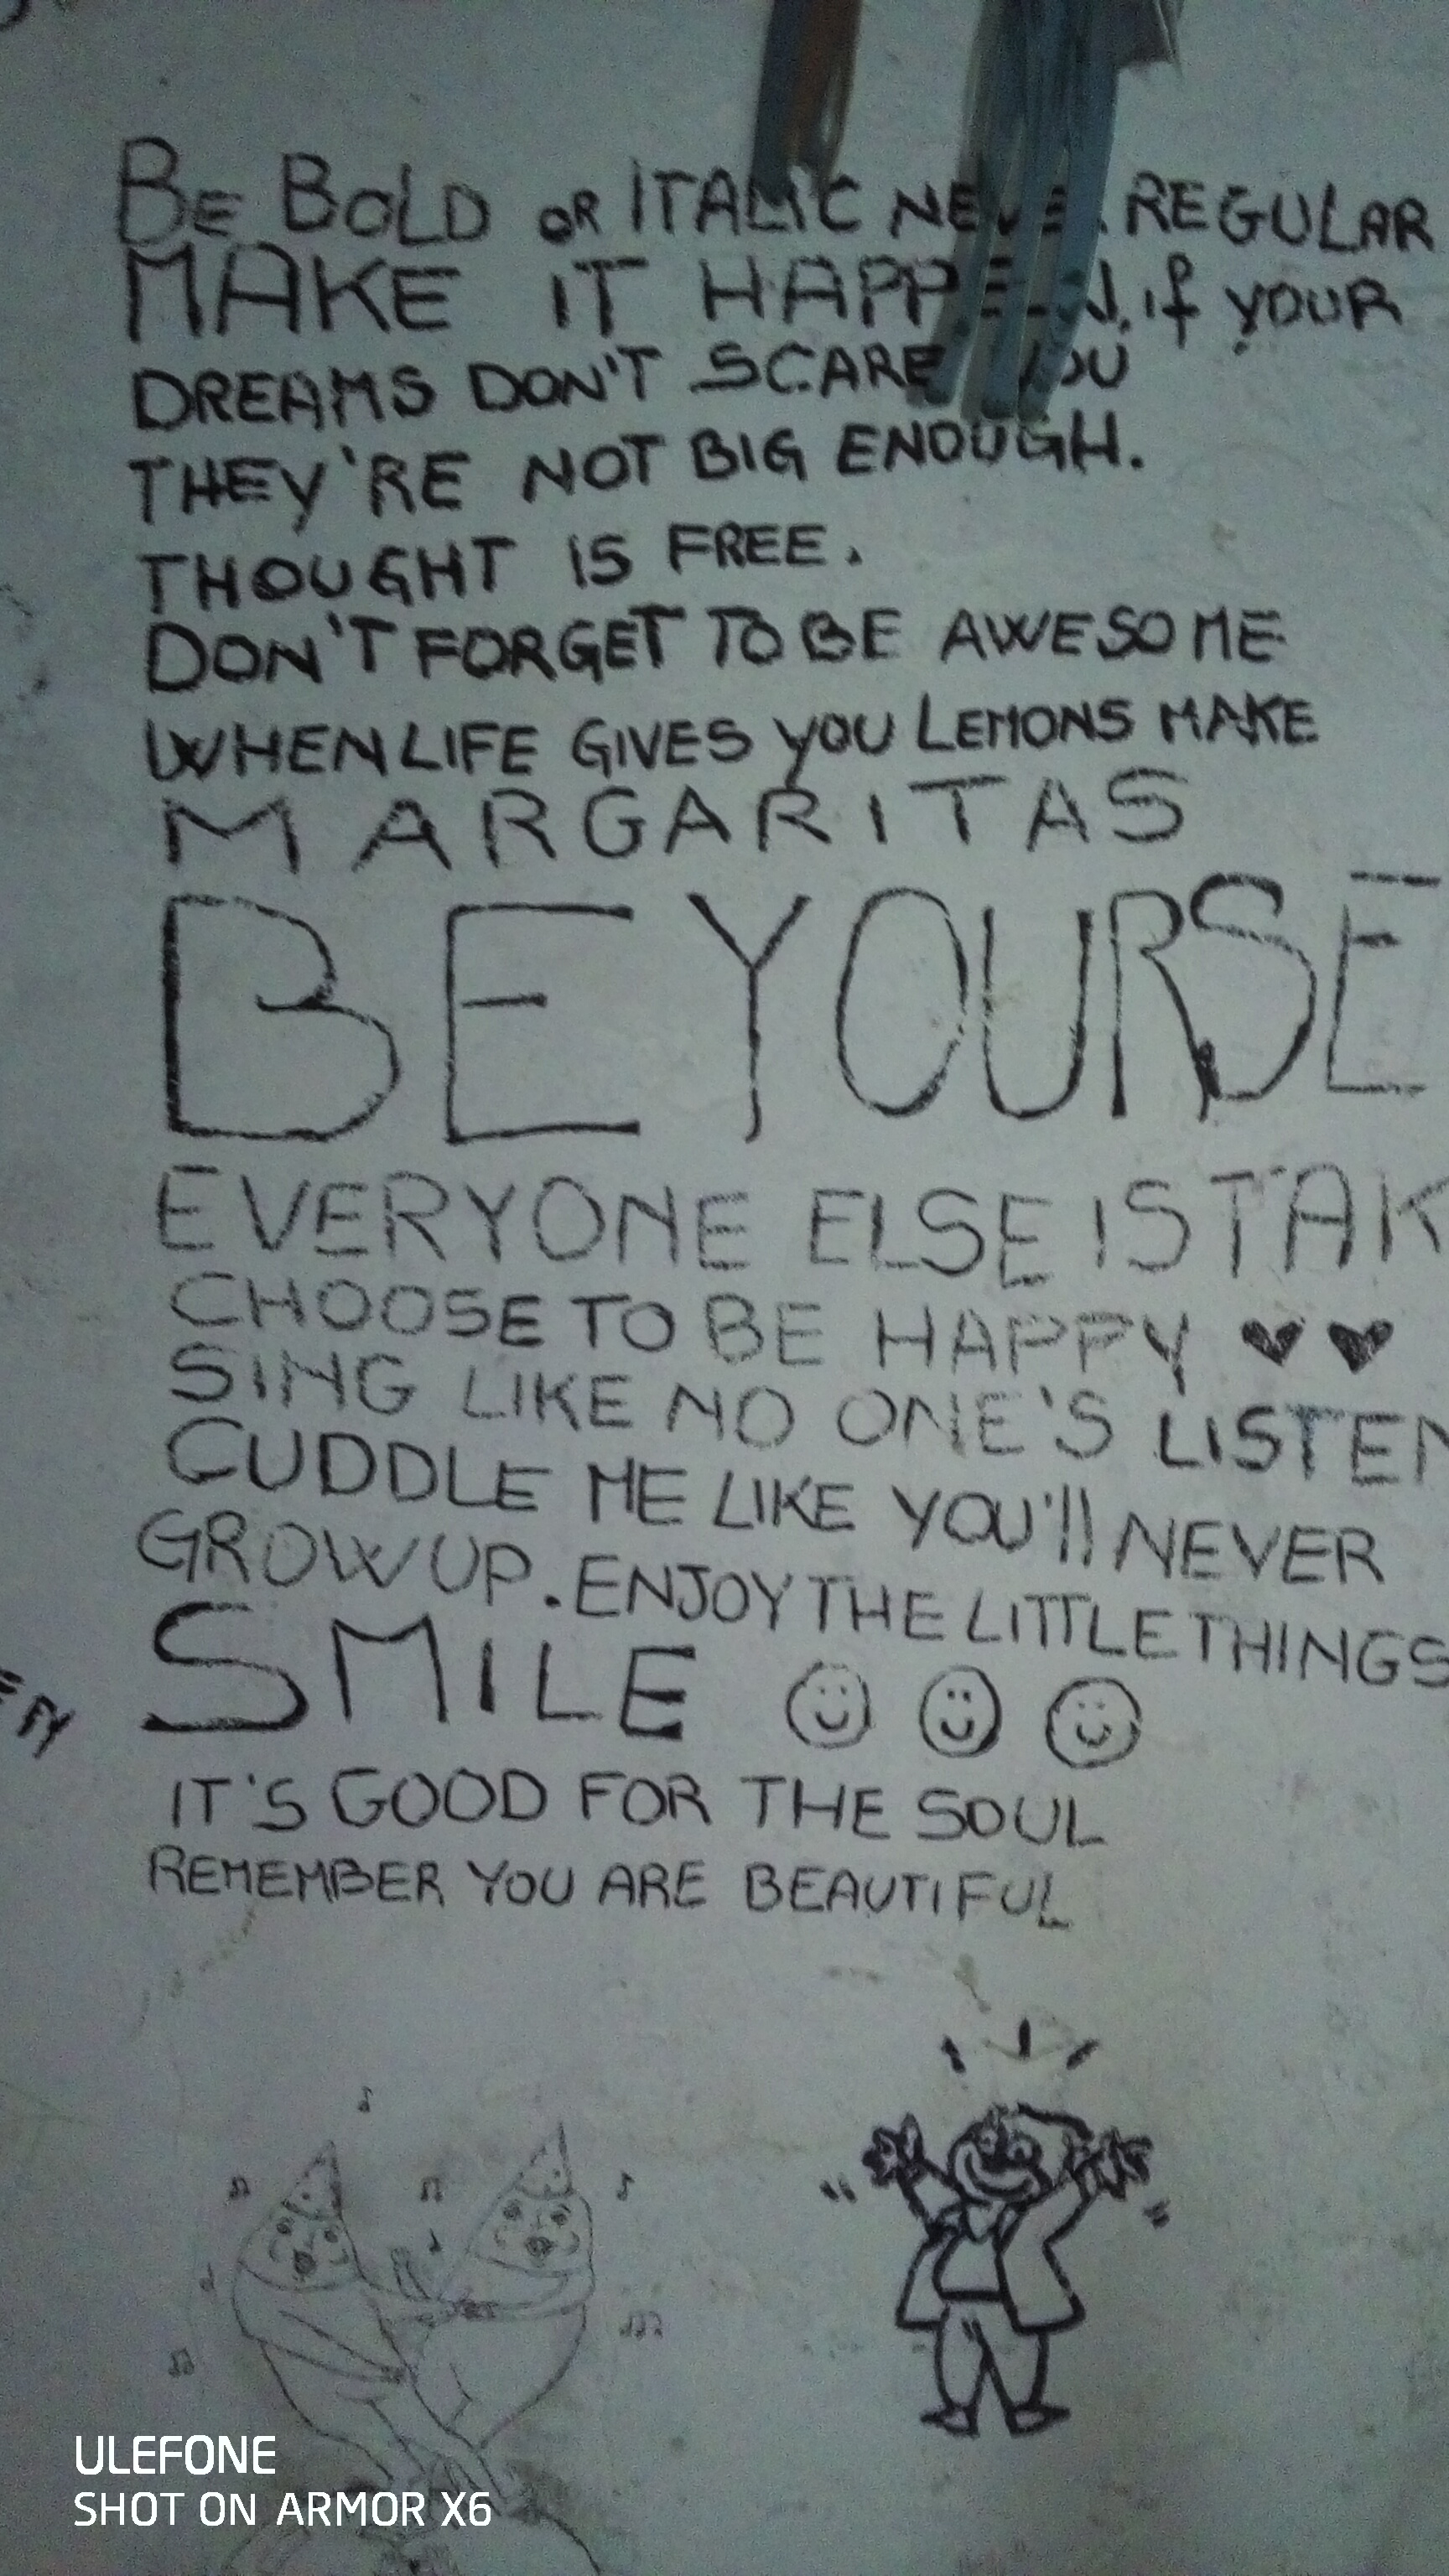 BE BOLD OR ITALIC NEVER REGULAR
MAKE IT HAPPEN. if YOUR
DREAMS DON'T SCARE YOU
THEY'RE NOT BIG ENOUGH.
THOUGHT IS FREE.
DON'T FORGET TO BE AWESOME
WHEN LIFE GIVES YOU LEMONS MAKE
MARGARITAS
BE YOURSE
EVERYONE ELSE IS TAK
CHOOSE TO BE HAPPY ♥♥
SING LIKE NO ONE'S LISTEN
CUDDLE ME LIKE YOU'll NEVER
GROW UP. ENJOY THE LITTLE THINGS
SMILE ☺ ☺ ☺
IT'S GOOD FOR THE SOUL
REMEMBER YOU ARE BEAUTIFUL
ULEFONE
SHOT ON ARMOR X6